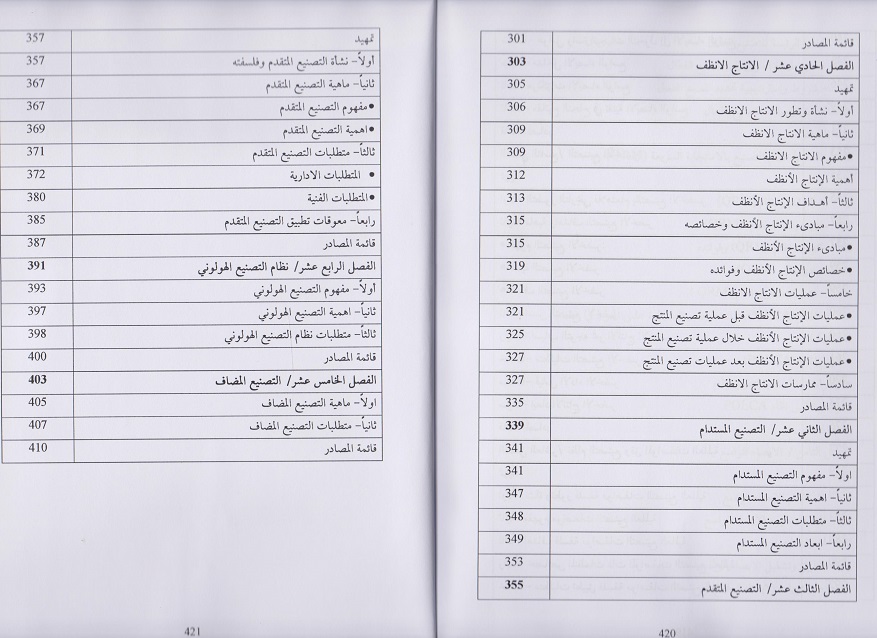 قائمة المصادر 301
الفصل الحادي عشر / الانتاج الانظف 303
تمهيد 305
أولاً- نشأة وتطور الانتاج الانظف 306
ثانياً- ماهية الانتاج الانظف 309
•مفهوم الانتاج الانظف 309
أهمية الإنتاج الأنظف 312
ثالثاً- أهداف الإنتاج الأنظف 313
رابعاً- مبادىء الإنتاج الأنظف وخصائصه 315
•مبادىء الإنتاج الأنظف 315
•خصائص الإنتاج الأنظف وفوائده 319
خامساً- عمليات الانتاج الانظف 321
•عمليات الإنتاج الأنظف قبل عملية تصنيع المنتج 321
•عمليات الإنتاج الأنظف خلال عملية تصنيع المنتج 325
•عمليات الإنتاج الأنظف بعد عمليات تصنيع المنتج 327
سادساً- ممارسات الانتاج الانظف 327
قائمة المصادر 335
الفصل الثاني عشر/ التصنيع المستدام 339
تمهيد 341
اولاً- مفهوم التصنيع المستدام 341
ثانياً- اهمية التصنيع المستدام 347
ثالثاً- متطلبات التصنيع المستدام 348
رابعاً- ابعاد التصنيع المستدام 349
قائمة المصادر 353
الفصل الثالث عشر/ التصنيع المتقدم 355
420
تمهيد 357
أولاً- نشأة التصنيع المتقدم وفلسفته 357
ثانياً- ماهية التصنيع المتقدم 367
•مفهوم التصنيع المتقدم 367
•اهمية التصنيع المتقدم 369
ثالثاً- متطلبات التصنيع المتقدم 371
• المتطلبات الادارية 372
•المتطلبات الفنية 380
رابعاً- معوقات تطبيق التصنيع المتقدم 385
قائمة المصادر 387
الفصل الرابع عشر/ نظام التصنيع الهولوني 391
أولاً- مفهوم التصنيع الهولوني 393
ثانياً- اهمية التصنيع الهولوني 397
ثالثاً- متطلبات نظام التصنيع الهولوني 398
قائمة المصادر 400
الفصل الخامس عشر/ التصنيع المضاف 403
اولاً- ماهية التصنيع المضاف 405
ثانياً- متطلبات التصنيع المضاف 407
قائمة المصادر 410
421